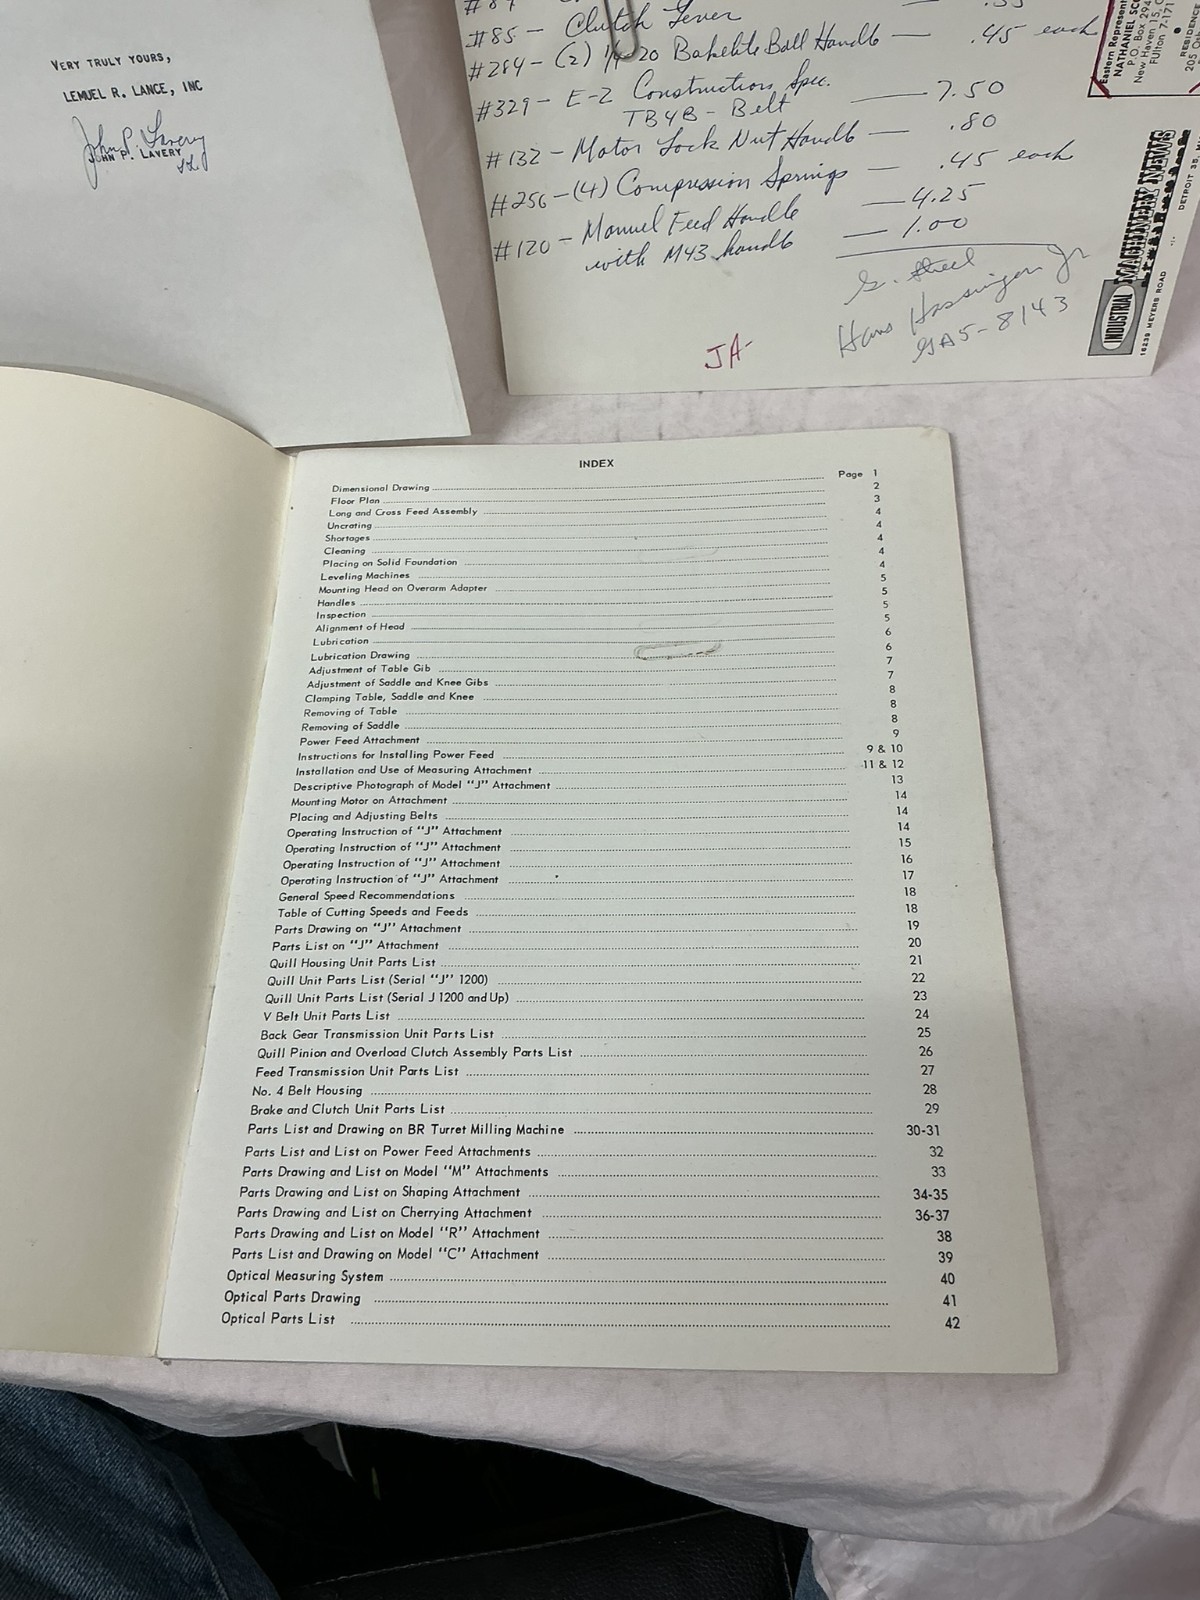 VERY TRULY YOURS,
LEMUEL R. LANCE, INC
John P. Lavery
JOHN P. LAVERY
#85 - Clutch Lever
#284 - (2) 1/4-20 Bakelite Ball Handle - .45 each
#329 - E-Z Construction Spec.
TB4B - Belt - 7.50
#132 - Motor Lock Nut Handle - .80
#256 - (4) Compression Springs - .45 each
#120 - Manuel Feed Handle - 4.25
with M43 handle - 1.00
G. Steel
Hans Hassinger Jr
GA5-8143
JA-
Eastern Represent
NATHANIEL SC
P.O. Box 294
New Haven 15, C
FUlton 7-171
RESIDENCE
205
MACHINERY NEWS
INDUSTRIAL
16239 MEYERS ROAD
DETROIT 35,
INDEX
Dimensional Drawing Page 1
Floor Plan 2
Long and Cross Feed Assembly 3
Uncrating 4
Shortages 4
Cleaning 4
Placing on Solid Foundation 4
Leveling Machines 4
Mounting Head on Overarm Adapter 5
Handles 5
Inspection 5
Alignment of Head 5
Lubrication 6
Lubrication Drawing 6
Adjustment of Table Gib 7
Adjustment of Saddle and Knee Gibs 7
Clamping Table, Saddle and Knee 8
Removing of Table 8
Removing of Saddle 8
Power Feed Attachment 9
Instructions for Installing Power Feed 9 & 10
Installation and Use of Measuring Attachment 11 & 12
Descriptive Photograph of Model "J" Attachment 13
Mounting Motor on Attachment 14
Placing and Adjusting Belts 14
Operating Instruction of "J" Attachment 14
Operating Instruction of "J" Attachment 15
Operating Instruction of "J" Attachment 16
Operating Instruction of "J" Attachment 17
General Speed Recommendations 18
Table of Cutting Speeds and Feeds 18
Parts Drawing on "J" Attachment 19
Parts List on "J" Attachment 20
Quill Housing Unit Parts List 21
Quill Unit Parts List (Serial "J" 1200) 22
Quill Unit Parts List (Serial J 1200 and Up) 23
V Belt Unit Parts List 24
Back Gear Transmission Unit Parts List 25
Quill Pinion and Overload Clutch Assembly Parts List 26
Feed Transmission Unit Parts List 27
No. 4 Belt Housing 28
Brake and Clutch Unit Parts List 29
Parts List and Drawing on BR Turret Milling Machine 30-31
Parts List and List on Power Feed Attachments 32
Parts Drawing and List on Model "M" Attachments 33
Parts Drawing and List on Shaping Attachment 34-35
Parts Drawing and List on Cherrying Attachment 36-37
Parts Drawing and List on Model "R" Attachment 38
Parts List and Drawing on Model "C" Attachment 39
Optical Measuring System 40
Optical Parts Drawing 41
Optical Parts List 42